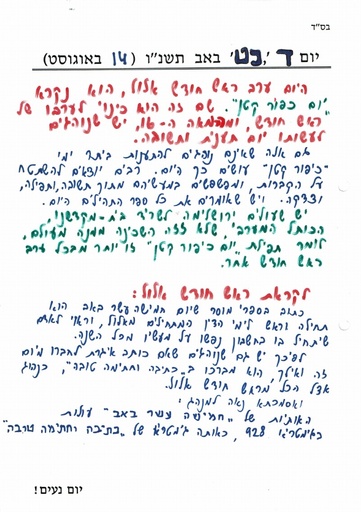 בס"ד
יום ד', כט' באב תשנ"ו (14 באוגוסט)
היום ערב ראש חודש אלול, הוא נקרא
"יום כפור קטן". שם זה הוא כינוי לערבו של
ראש חודש, ומהמאה ה-16, יש שנוהגים
לעשותו יום תענית ותשובה.
גם אלה שאינם נוהגים להתענות ביתר ימי
"כיפור קטן" עושים כך היום. רבים יוצאים להשתטח
על הקברות, ומפשפשים במעשיהם מתוך תשובה, תפילה,
וצדקה. ויש שאומרים את כל ספר התהילים היום.
יש שעולים ירושלימה לשריד בית-מקדשנו,
הכותל המערבי, שלא זזה השכינה ממנה מעולם,
לומר תפילת "יום כיפור קטן" זו יותר מבכל ערב
ראש חודש אחר.
לקראת ראש חודש אלול:
כתוב בספרי מוסר שיום חמישה עשר באב הוא
תחילה וראש לימי הדין המתחילים מאלול, וראוי לאדם
שיתחיל בו בחשבון נפשו על מעשיו מכל השנה.
לפיכך יש גם שנוהגים שאם כותב איגרת לחברו מיום
זה ואילך הוא מברכו ב"כתיבה וחתימה טובה", כנהוג
אצל הכל מראש חודש אלול.
ואסמכתא נאה למנהג:
האותיות של "חמישה עשר באב" עולות
בגימטריה 928, כאותה גימטריא של "כתיבה וחתימה טובה"
יום נעים!